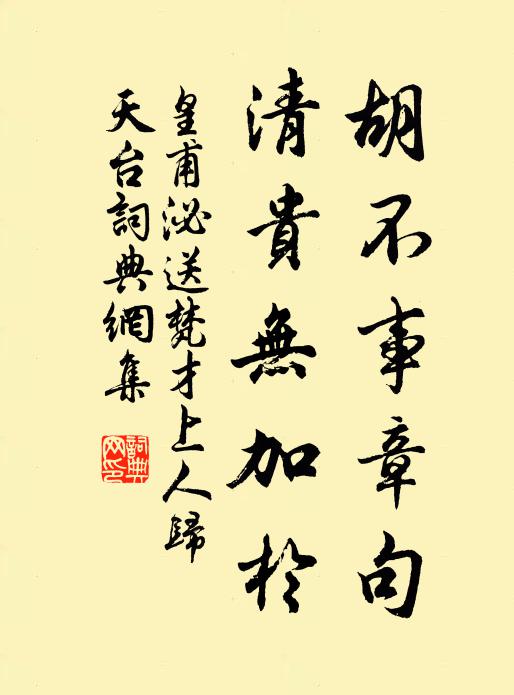 胡不事章句
清貴無加於
皇甫泌送梵才上人歸
天台詞典網集
詞典网印